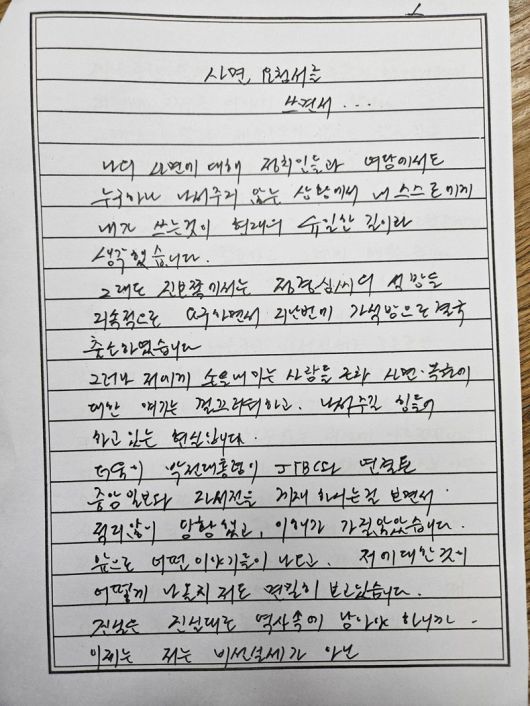 사면 요청서를
쓰면서...
나의 사면에 대해 정치인들과 여당에서도
누구하나 나서주지 않는 상황에서 내 스스로에게
내가 쓰는것이 현재의 유일한 길이라
생각했습니다.
그래도 진보쪽에서는 정경심씨의 석방을
계속적으로 요구하면서 지난번에 가석방으로 결국
출소하였습니다
그러나 저에게 손을내미는 사람들 조차 사면·복권에
대한 얘기는 껄끄러워하고. 나서주길 힘들어
하고 있는 현실입니다.
더욱이 박전대통령이 JTBC와 연결된
중앙일보와 자서전을 게재 하시는걸 보면서
적지않이 당황 했고, 이해가 가질않았습니다.
앞으로 어떤 이야기들이 나오고. 저에대한것이
어떻게 나올지 저도 면밀히 보고있습니다.
진실은 진실대로 역사속에 남아야 하니까.
이제는 저는 비선실세가 아닌